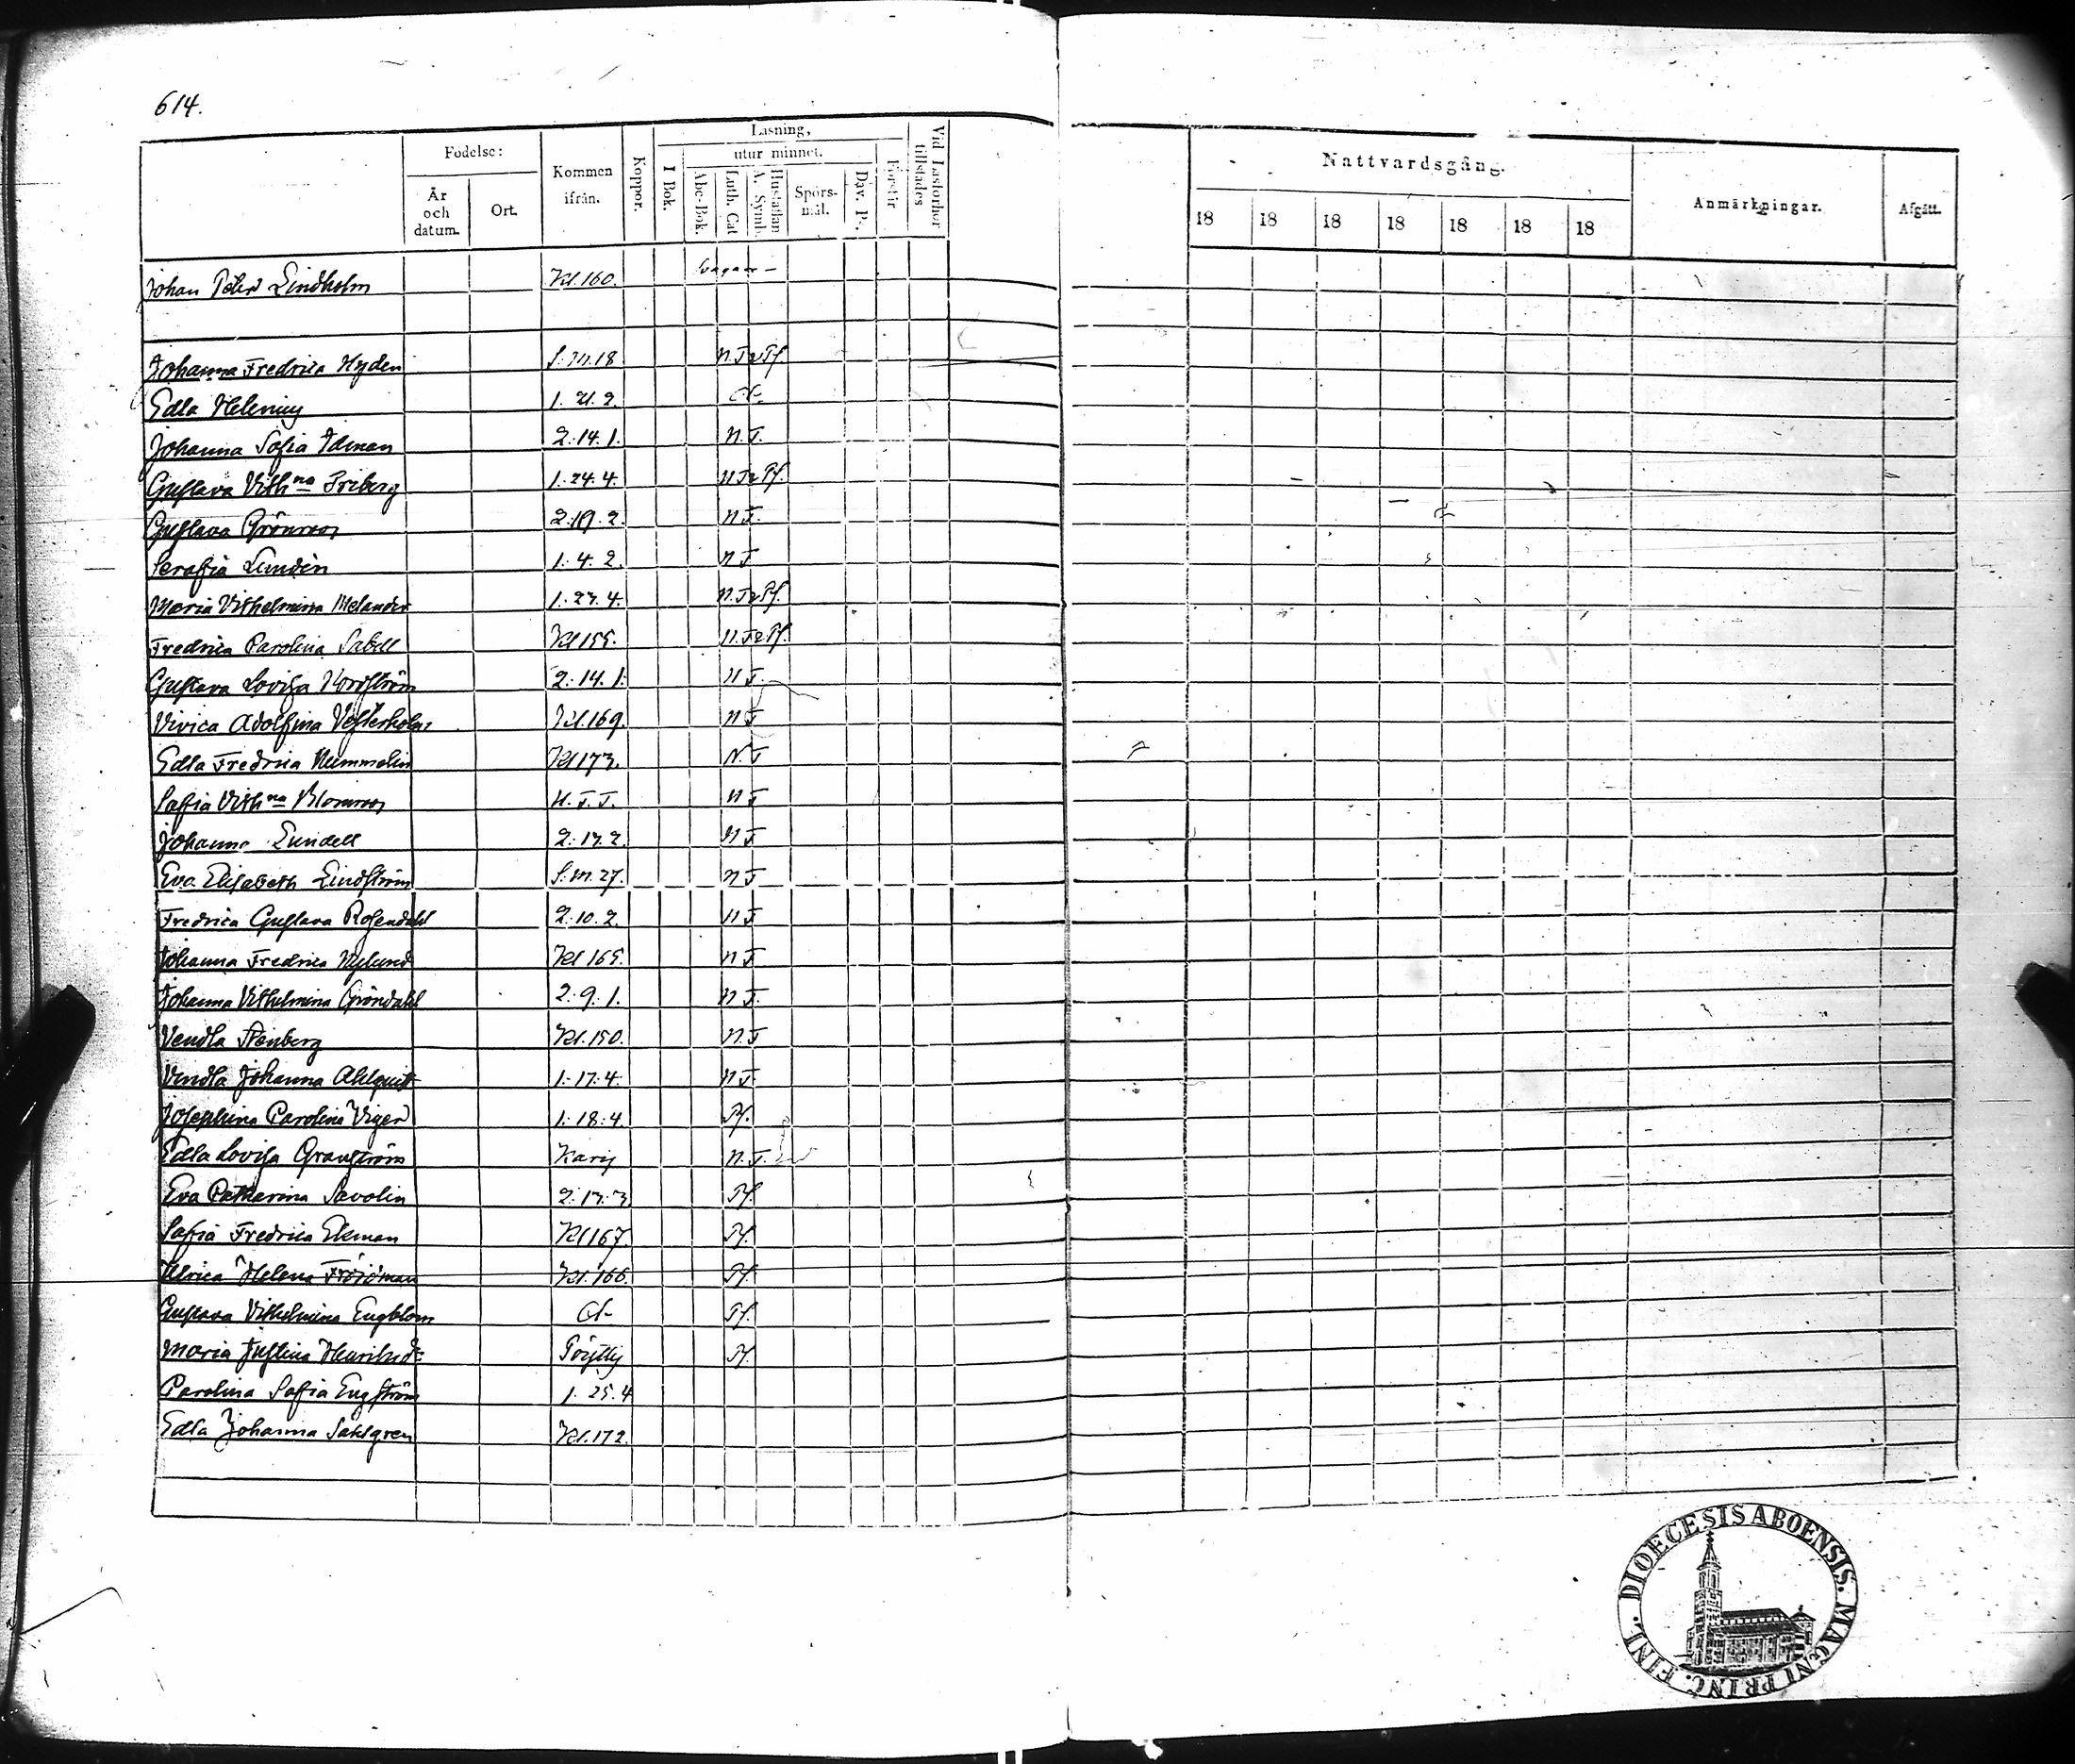 614.
Födelse:
År och datum.
Ort.
Kommen ifrån.
Koppor.
Läsning,
I Bok.
utur minnet.
Abc-Bok.
Luth. Cat
A. Symb. Hustaflan
Spörs-mål.
Dav. Ps.
Förstår
Vid Läsförhör tillstädes
Nattvardsgång.
18 18 18 18 18 18 18
Anmärkningar.
Afgått.
Johan Peter Lindholm Kl. 160.
Johanna Fredrica Hyden S. M. 18 N. T. & Ps.
Edla Helenius 1. 21. 2.
Johanna Sofia Idman 2. 14. 1. N. T.
Gustava Vilhna Friberg 1. 24. 4. N T & Ps.
Gustava Grönroos 2. 19. 2. N T.
Seraffia Lundén 1. 4. 2. N T
Maria Vilhelmina Melander 1. 23. 4. N. T & Ps.
Fredrica Carolina Sabell Kl 155. N. T & Ps.
Gustava Lovisa Nordström 2. 14. 1. N T.
Vivica Adolfina Vesterholm Kl. 169. N T
Edla Fredrica Nummelin Kl 173. N. T
Saffia Vilhna Blomroos H. T. T. N T
Johanna Lundell 2. 13. 2. N T
Eva Elisabeth Lindström S. M. 27. N T
Fredrica Gustava Rosendahl 2. 10. 2. N T
Johanna Fredrica Nylund Kl 165. N T
Johanna Vilhelmina Gröndahl 2. 9. 1. N T.
Vendla Stenberg Kl. 150. N. T
Vendla Johanna Ahlquist 1. 17. 4. N T.
Josephina Carolina Viger 1. 18. 4. Ps.
Edla Lovisa Granström Karis N. T.
Eva Catharina Savolin 2. 13. 3 Ps.
Safia Fredrica Ekman Kl 167. Ps.
Ulrica Helena Fröjdman Kl. 166. Ps.
Gustava Vilhelmina Engblom Ps.
Maria Justina Henriksdr Pöytis Ps.
Carolina Saffia Engström 1. 25. 4
Edla Johanna Sahlgren Kl. 172.
DIOECESIS ABOENSIS. MAGNI PRINC. FINL.